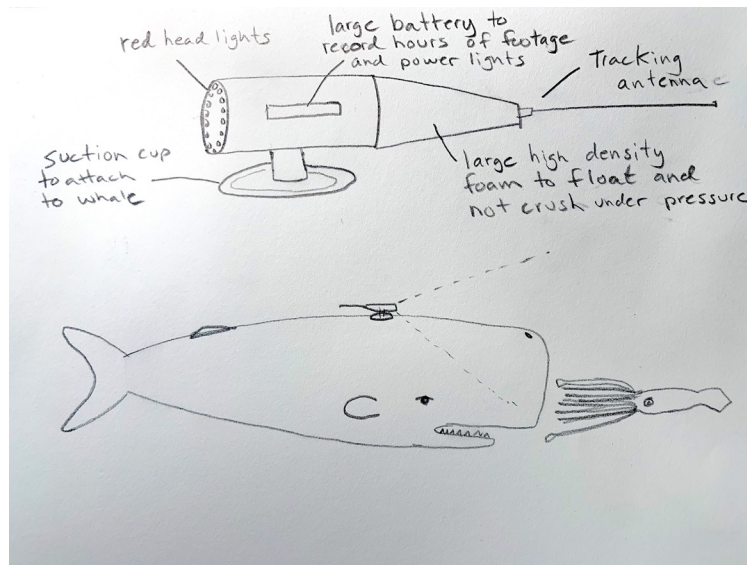 red head lights
large battery to
record hours of footage
and power lights
Tracking
antenna
suction cup
to attach
to whale
large high density
foam to float and
not crush under pressure